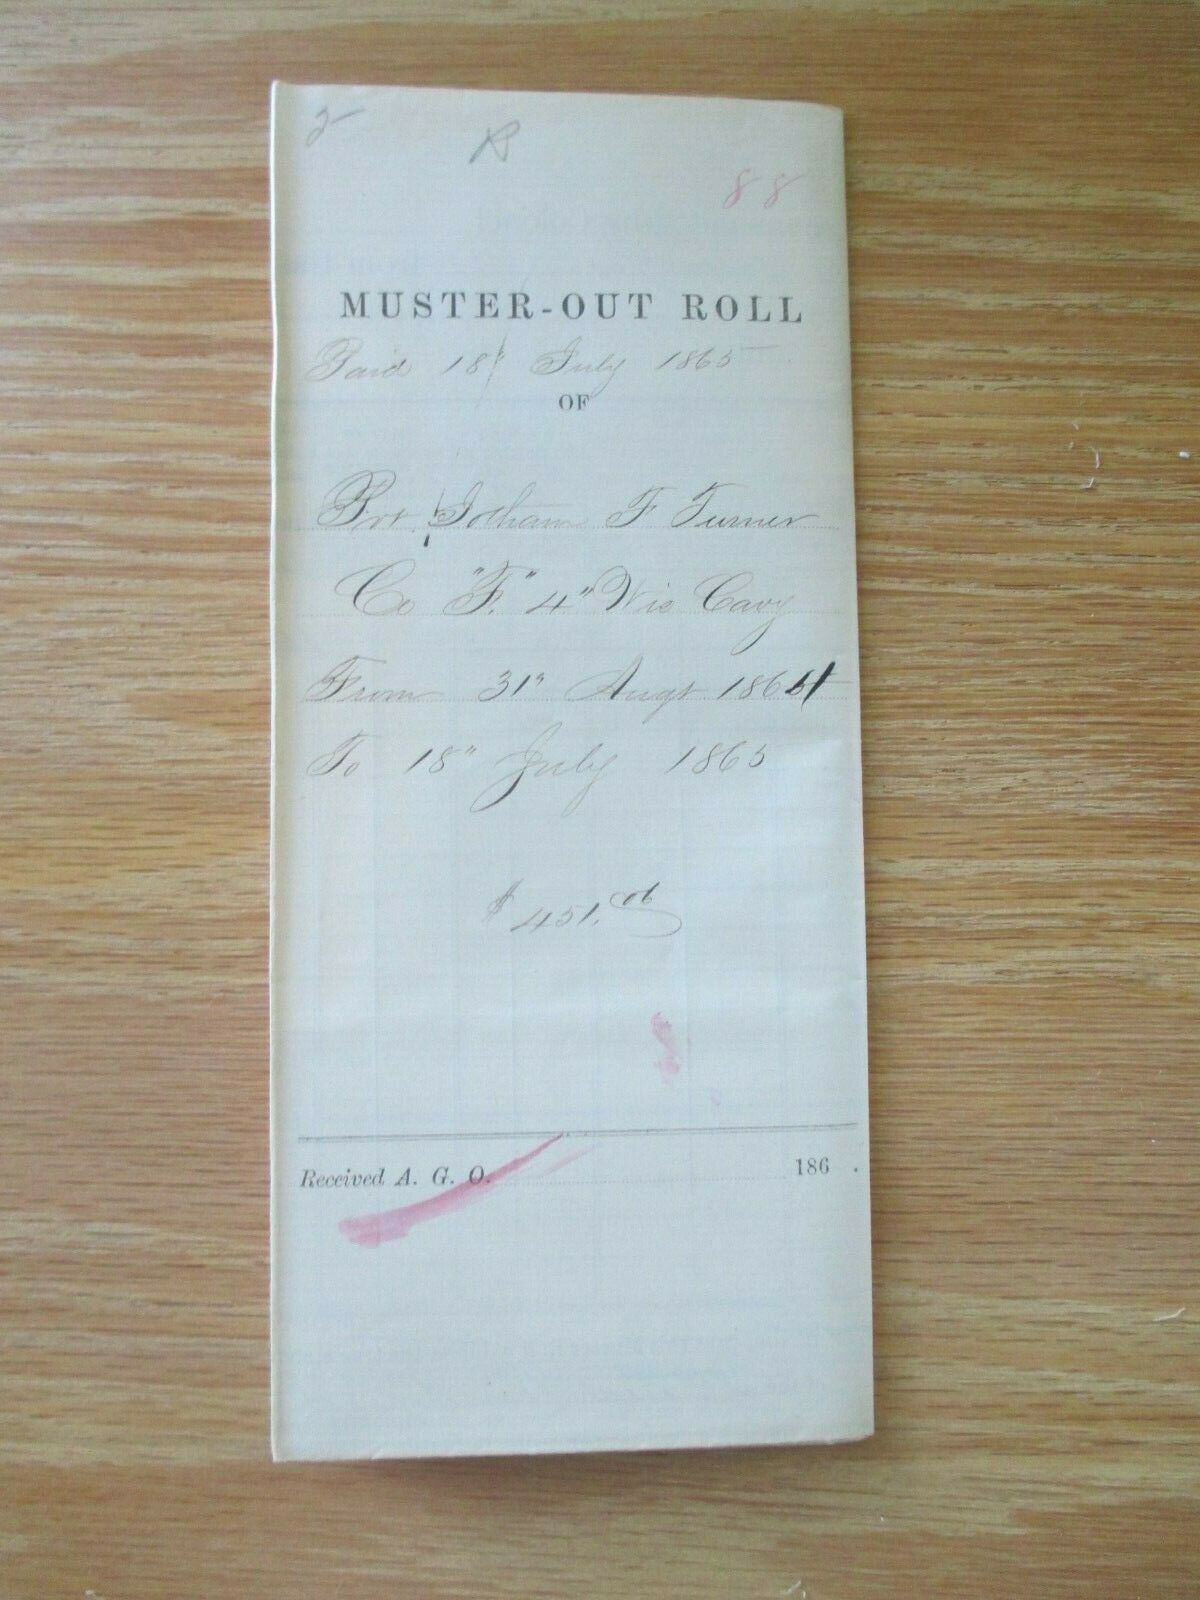 2
88
MUSTER-OUT ROLL
Paid 18" July 1865
OF
Pvt Jotham F Turner
Co "F." 4" Wis Cavy
From 31" Augt 1864
To 18" July 1865
$451.06
Received A. G. O. 186 .